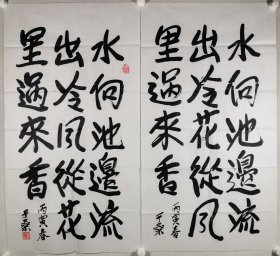 水向池邊流
出冷花從风
里過來香
丙寅春
水向池邊流
出冷风從花
里過來香
丙寅春